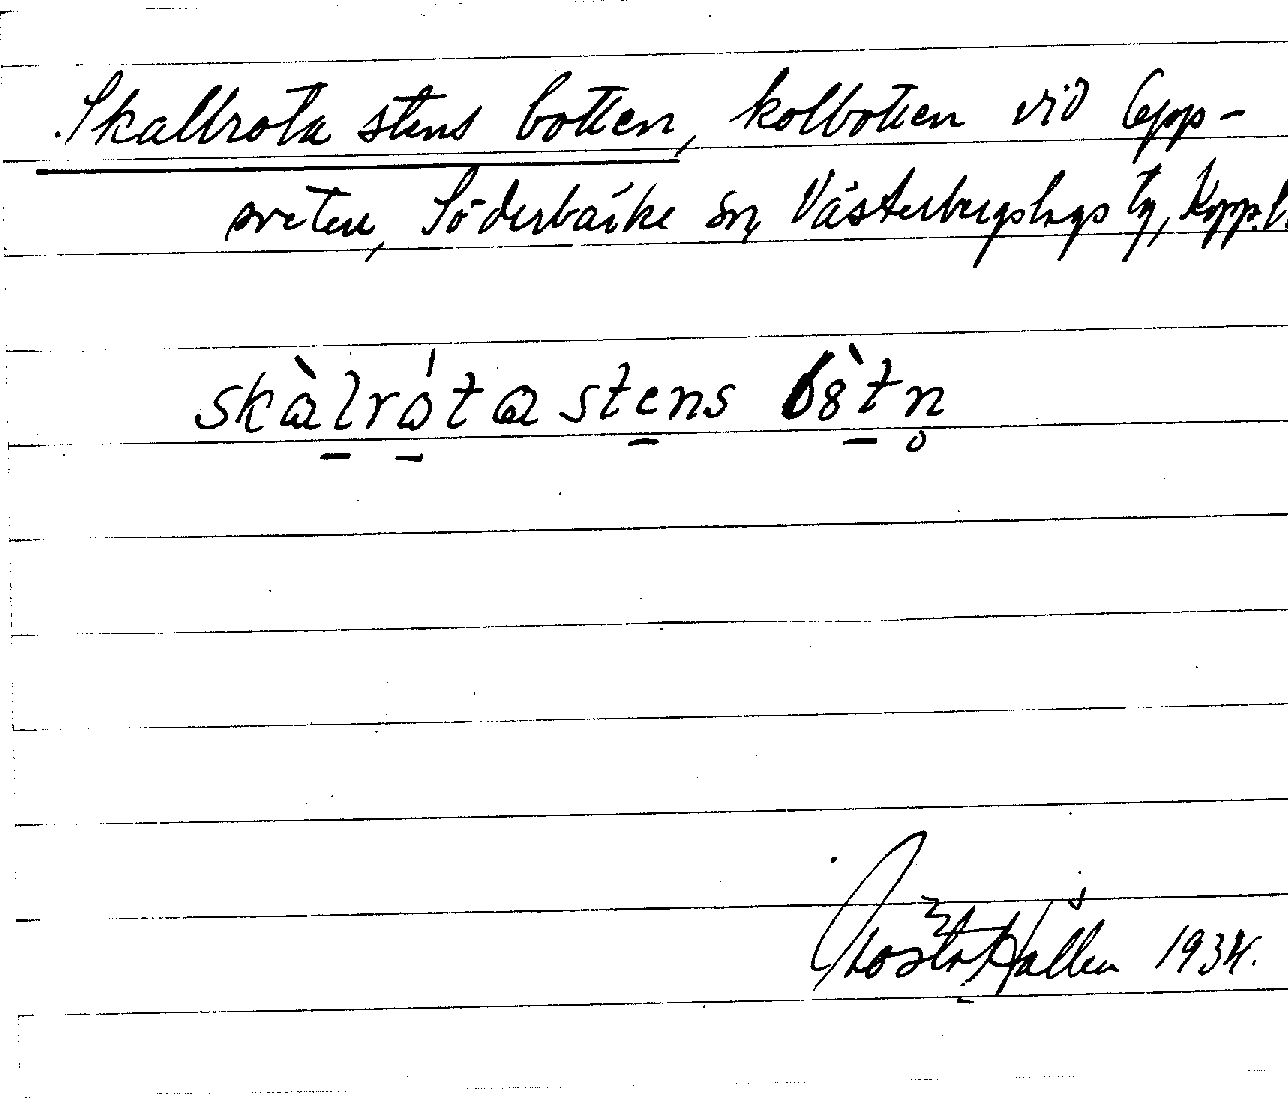 Skallrota stens botten, kolbotten vid Lepp-
sveten, Söderbärke sn, Västerbergslags tg, Kopp.l.
skàlróta stens bòtn̥
Gösta Hållen 1934.